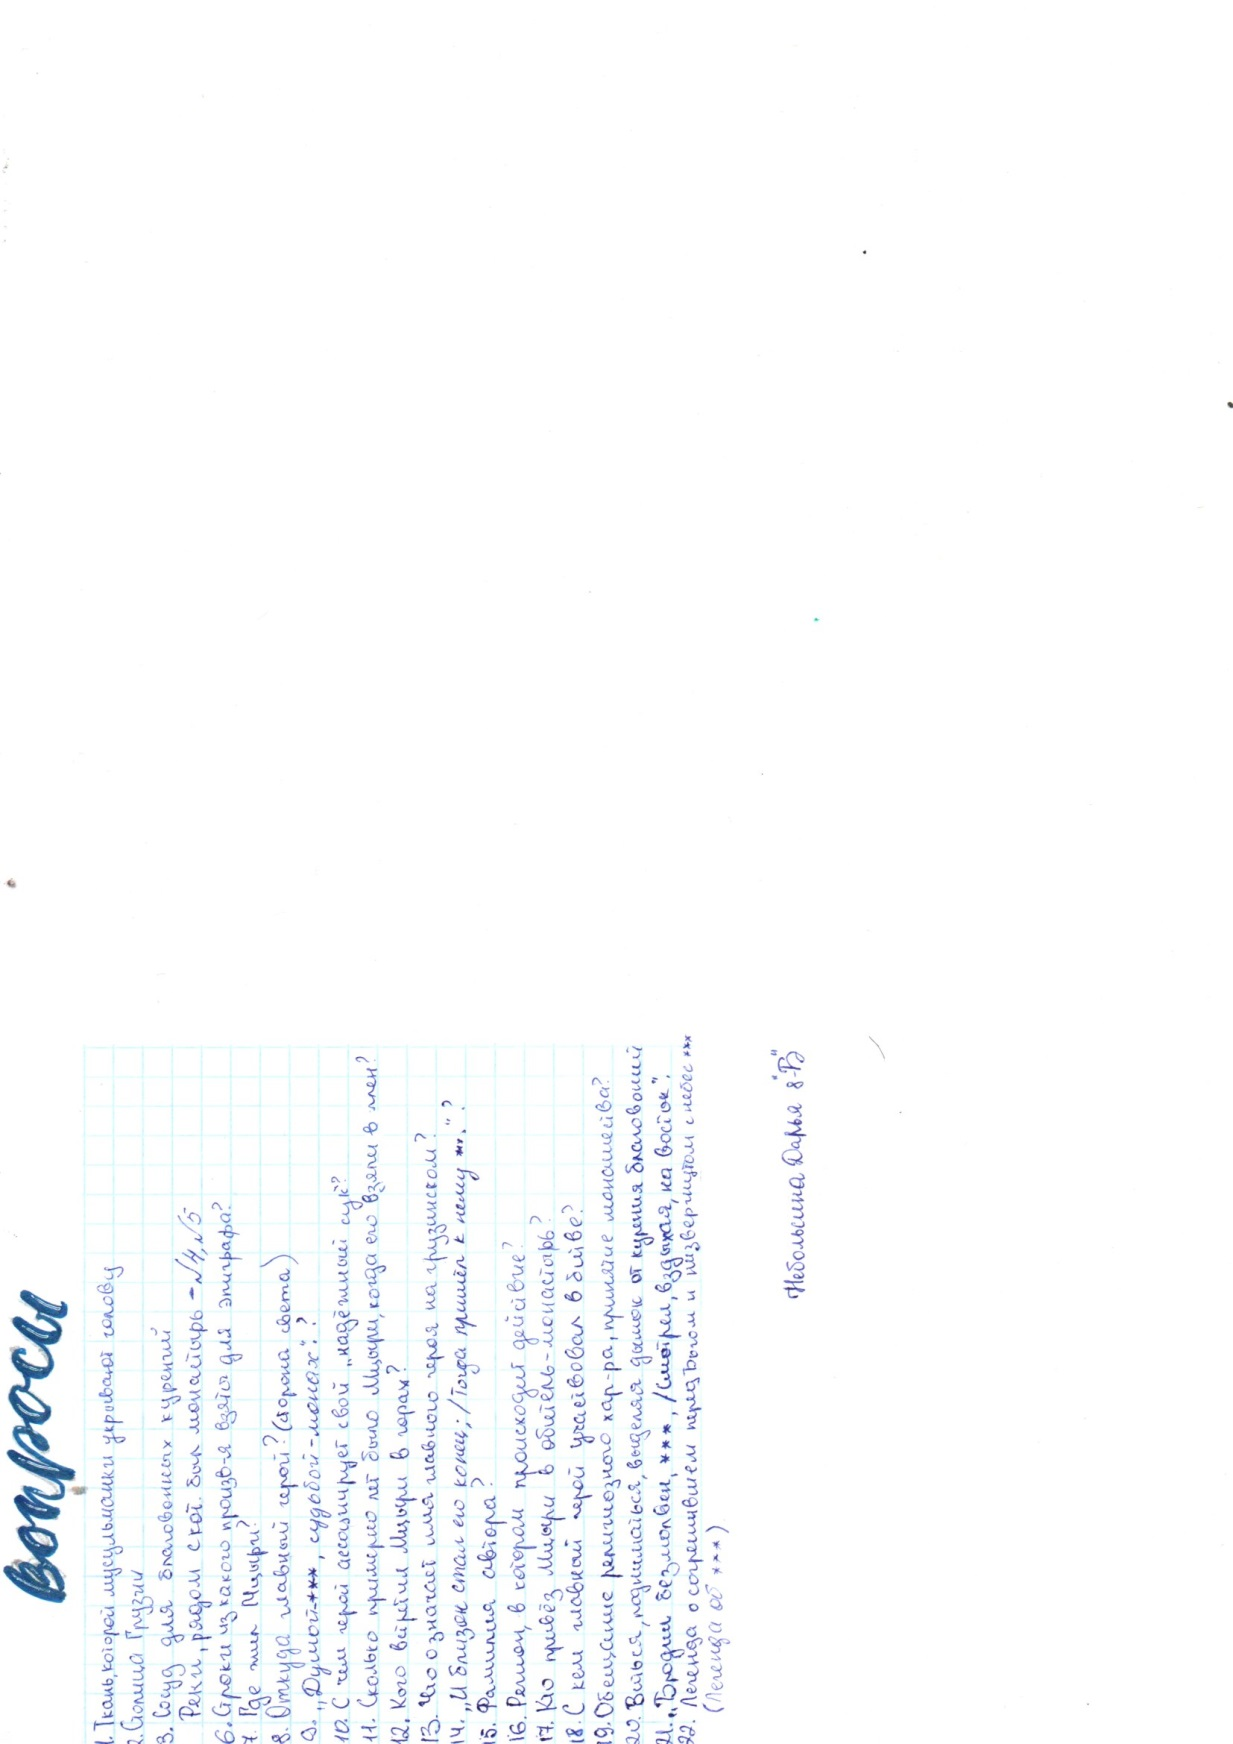 Вопросы
1. Ткань, которой мусульманки укрывают голову
2. Столица Грузии
3. Сосуд для благовонных курений
Реки, рядом с кот. был монастырь - №4, №5
6. Строки из какого произв-я взяты для эпиграфа?
7. Где жил Мцыри?
8. Откуда главный герой? (сторона света)
9. „Душой-***, судьбой-монах"?
10. С чем герой ассоциирует свой „надёжный сук"?
11. Сколько примерно лет было Мцыри, когда его взяли в плен?
12. Кого встретил Мцыри в горах?
13. Что означает имя главного героя на грузинском?
14. „И близок стал его конец; / Тогда пришёл к нему ***"?
15. Фамилия автора?
16. Регион, в котором происходит действие?
17. Кто привёз Мцыри в обитель-монастырь?
18. С кем главный герой участвовал в битве?
19. Обещание религиозного хар-ра, принятие монашества?
20. Виться, подниматься, выделяя дымок от курения благовоний
21. „Бродил безмолвен, ***, / Смотрел, вздыхая, на восток".
22. Легенда о согрешившем перед Богом и низвергнутом с небес ***
(Легенда об ***)
Небольсина Дарья 8-"В"